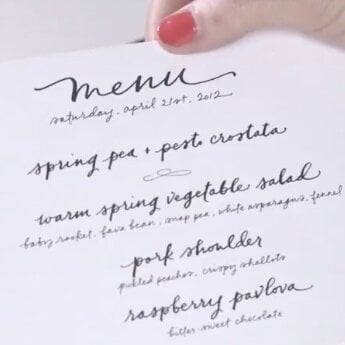 menu
saturday, april 21st, 2012
spring pea + pesto crostata
warm spring vegetable salad
baby rocket, fava bean, snap pea, white asparagus, fennel
pork shoulder
pickled peaches, crispy shallots
raspberry pavlova
bitter sweet chocolate